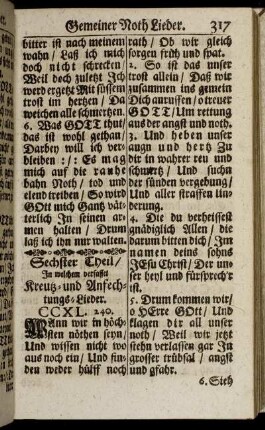 Gemeiner Noth Lieder. 317
bitter ist nach meinem
wahn/ Laß ich mich
doch nicht schrecken/
Weil doch zuletzt Ich
werd ergetzt Mit süssem
trost im hertzen/ Da
weichen alle schmertzen.
6. Was GOTT thut/
das ist wohl gethan/
Darbey will ich ver-
bleiben :/: Es mag
mich auf die rauhe
bahn Noth/ tod und
elend treiben/ So wird
GOtt mich Gantz väͤt-
terlich In seinen ar-
men halten/ Drum
laß ich ihn nur walten.
Sechster Theil/
In welchem verfasset
Kreutz- und Anfech-
tungs-Lieder.
CCXL. 240.
WAnn wir in höch-
sten nöthen seyn/
Und wissen nicht wo
aus noch ein/ Und fin-
den weder hülff noch
rath/ Ob wir gleich
sorgen früh und spat.
2. So ist das unser
trost allein/ Daß wir
zusammen ins gemein
Dich anruffen/ o treuer
GOTT/ Um rettung
aus der angst und noth.
3. Und heben unser
augn und hertz Zu
dir in wahrer reu und
schmertz/ Und suchen
der sünden vergebung/
Und aller straffen lin-
derung.
4. Die du verheissest
gnädiglich Allen/ die
darum bitten dich/ Im
namen deins sohns
JEsu Christ/ Der un-
ser heyl und fürsprech'r
ist.
5. Drum kommen wir/
o HErre GOtt/ Und
klagen dir all unser
noth/ Weil wir jetzt
stehn verlassen gar In
grosser trübsal/ angst
und gfahr.
6. Sieh